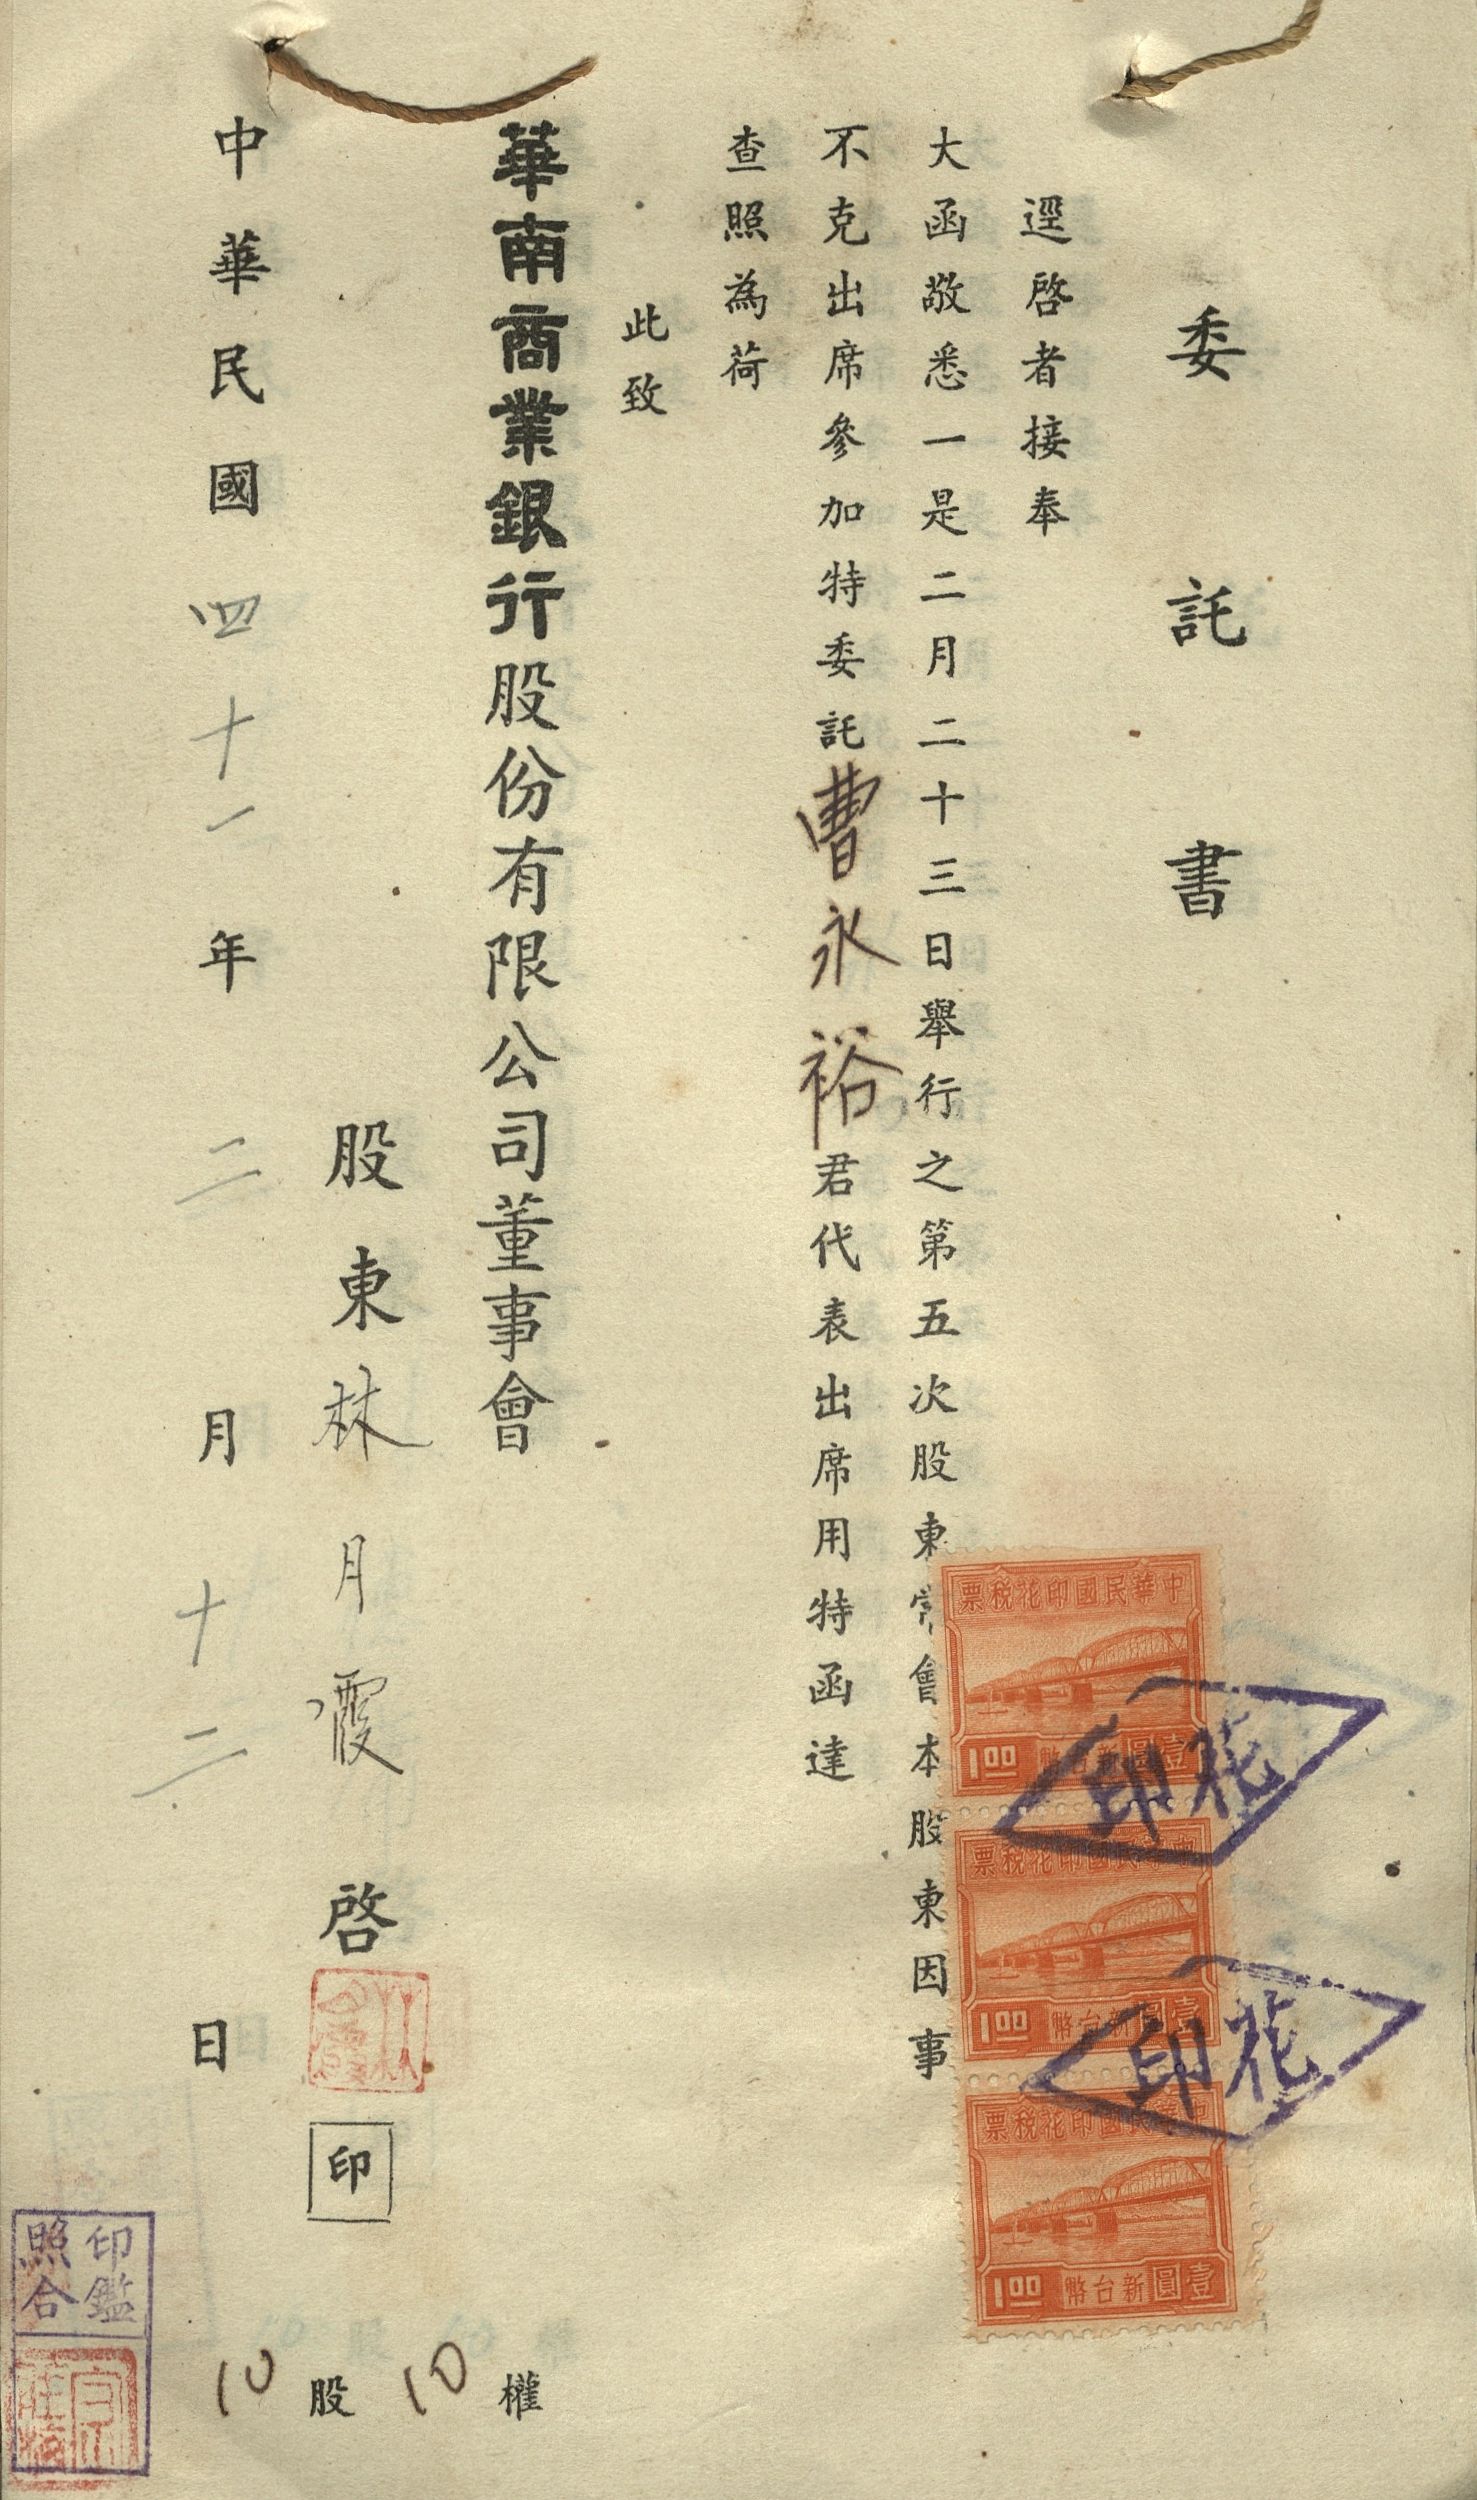 委託書
逕啓者接奉
大函敬悉一是二月二十三日舉行之第五次股東常會本股東因事
不克出席參加特委託曹永裕君代表出席用特函達
查照為荷
此致
華南商業銀行股份有限公司董事會
股東林月霞啓
印
中華民國四十一年二月十二日
10股10權
中華民國印花稅票
壹圓新台幣
1.00
中華民國印花稅票
壹圓新台幣
1.00
中華民國印花稅票
壹圓新台幣
1.00
印花
印花
林月霞
印鑑
照合